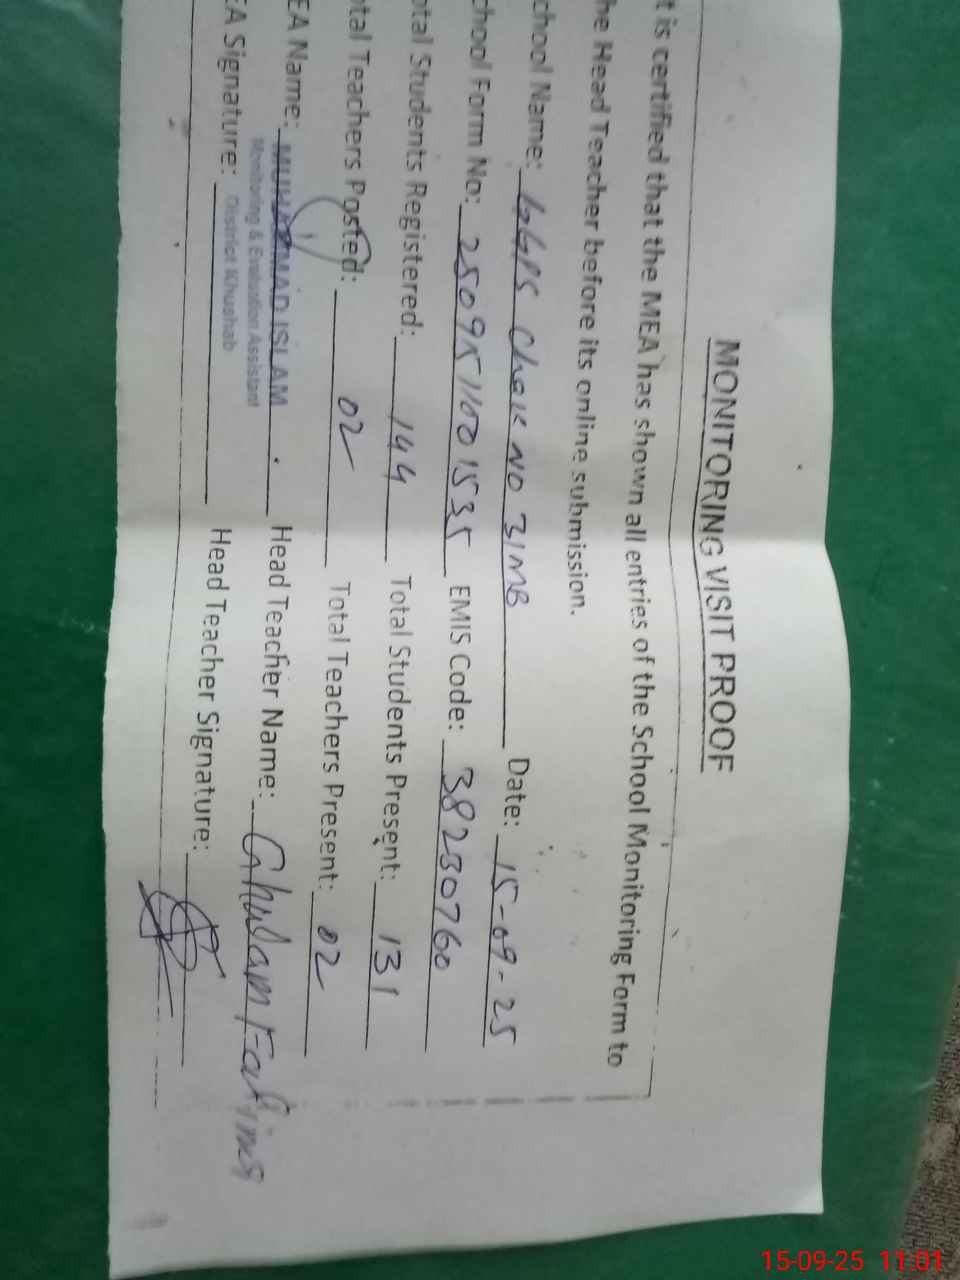 MONITORING VISIT PROOF
t is certified that the MEA has shown all entries of the School Monitoring Form to
he Head Teacher before its online submission.
chool Name: GGPS Chak NO 31MB Date: 15-09-25
chool Form No: 2509511001535 EMIS Code: 38230760
otal Students Registered: 144 Total Students Present: 131
otal Teachers Posted: 02 Total Teachers Present: 02
EA Name: MUHAMMAD ISLAM Head Teacher Name: Ghulam Fatima
Monitoring & Evaluation Assistant
District Khushab
EA Signature: Head Teacher Signature:
15-09-25 11:01